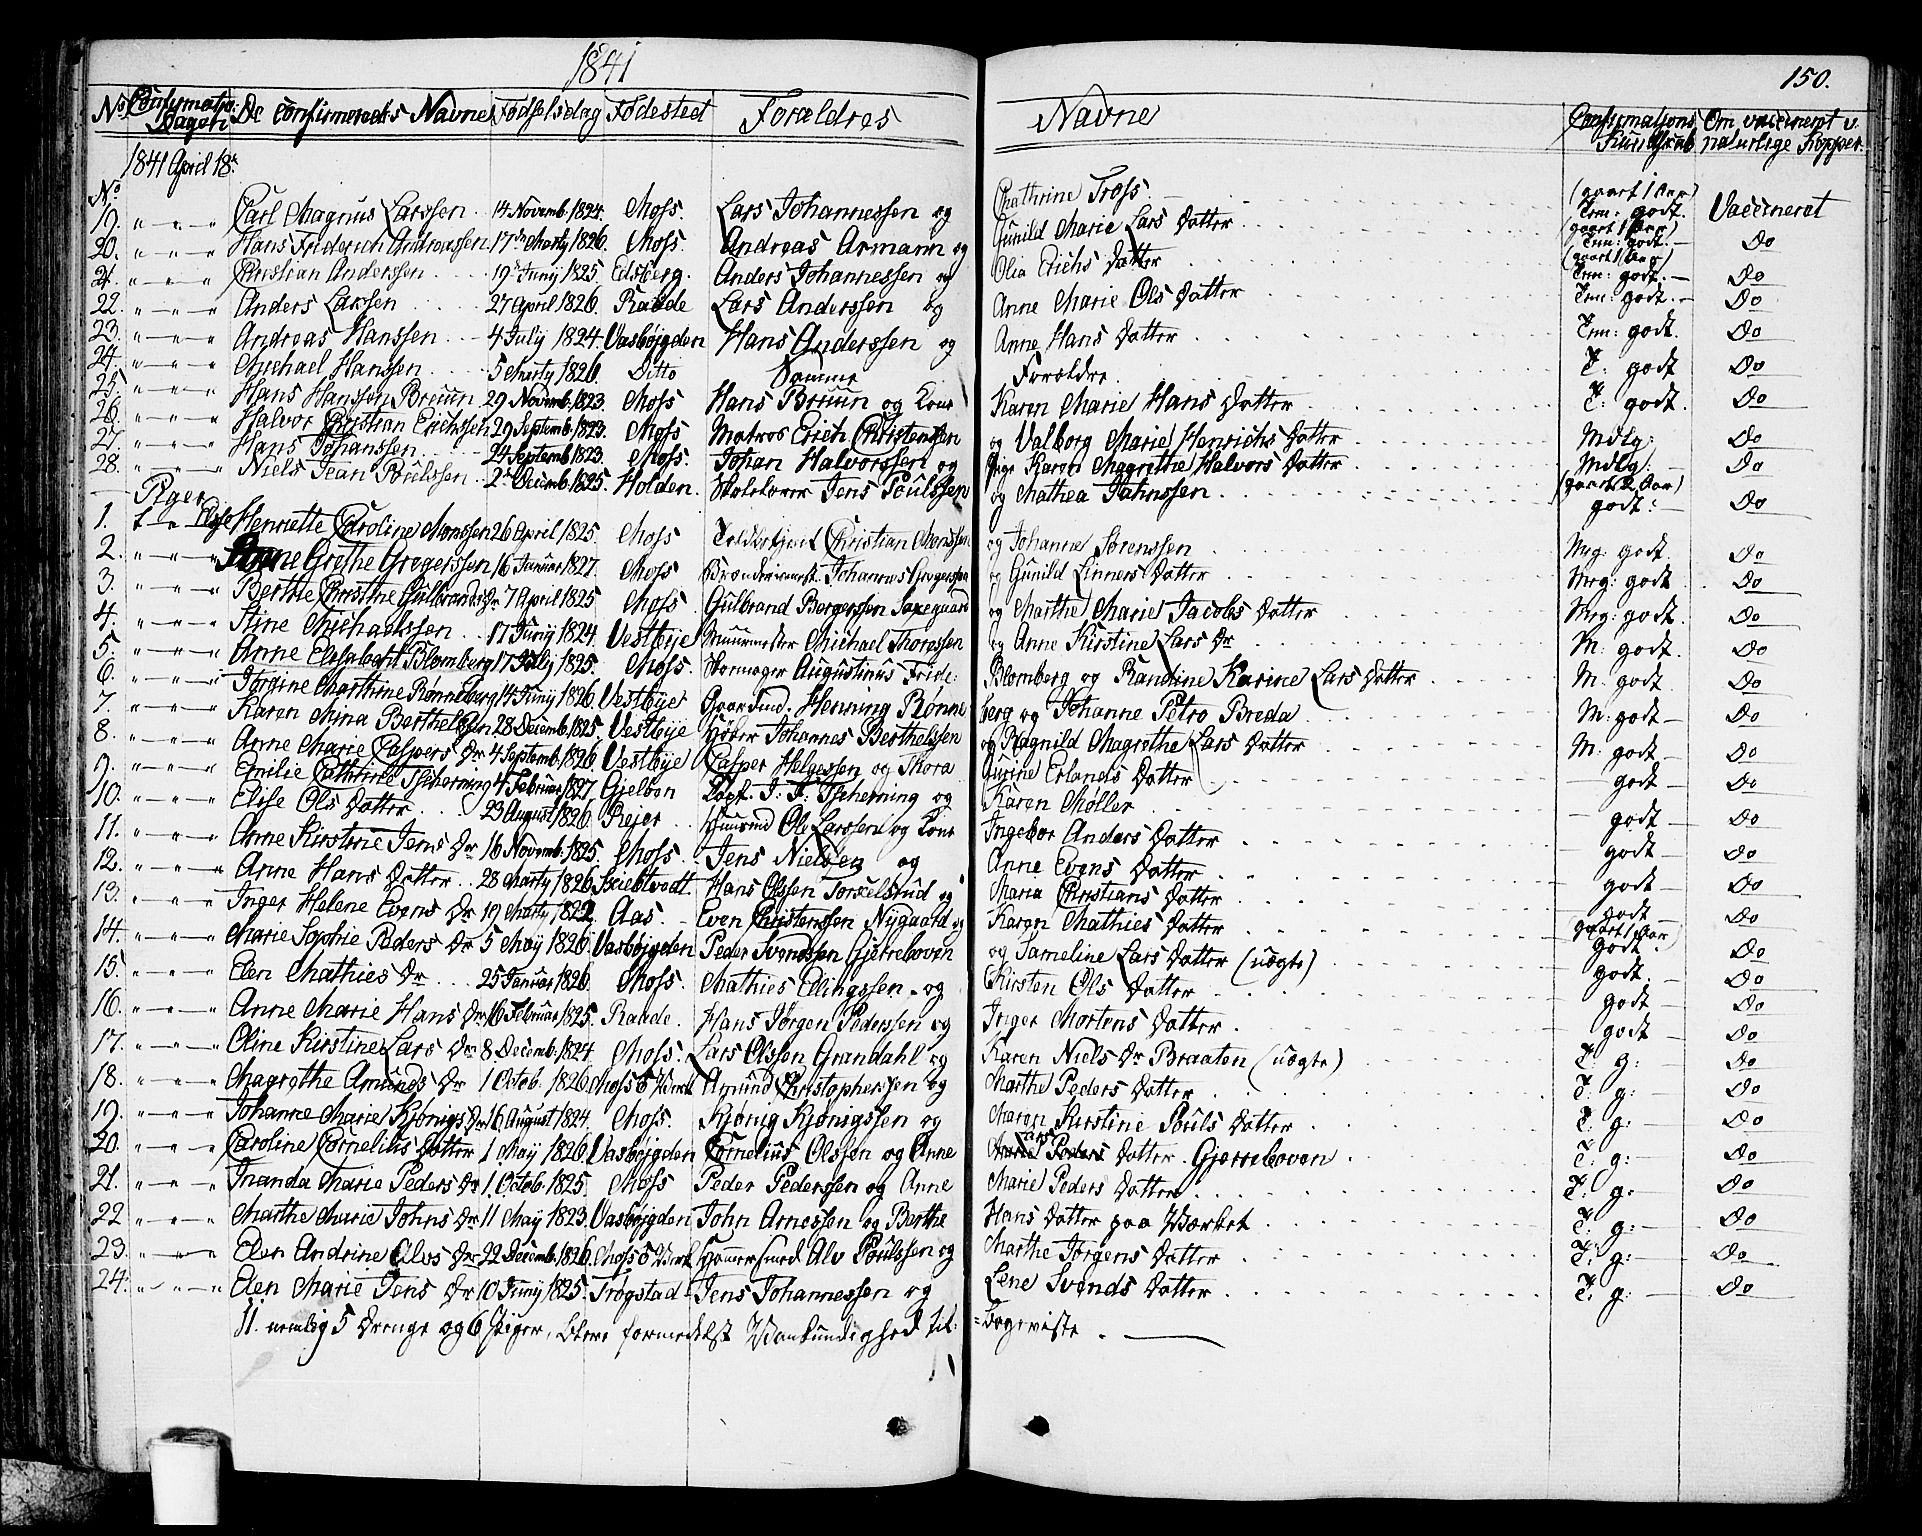 1841
150.
No Confirmations Dagen De Confirmeredes Navne Fødselsdag Fødested Forældres Navne Confirmations Kundskab Om vaccineret v. naturlige Kopper
1841 April 18de
No
19. " — " — " Carl Magnus Larssen 14 Novemb. 1824. Moss. Lars Johannessen og Cathrine Tross (gaaet 1 Aar) Tem: godt. Vaccineret
20. " — " — " Hans Friderich Andreassen 17de Marty 1826. Moss. Andreas Armann og Gunild Marie Lars Datter (gaaet 1 Aar) Tem: godt. — Do
21. " — " — " Christian Anderssen 19de Juny 1825 Edsberg. Anders Johannessen og Olia Erichs Datter (gaaet 1 Aar) Tem: godt. — Do
22. " — " — " Anders Larssen 27 April 1826. Raade Lars Anderssen og Anne Marie Ols Datter Tem: godt. — Do
23. " — " — " Andreas Hanssen 4 July 1824. Vasbøjgden Hans Anderssen og Anne Hans Datter Tem: godt. Do
24. " — " — " Michael Hanssen 5 Marty 1826. Ditto Samme Forældre T: godt Do
25. " — " — " Hans Hanssen Bruun 29 Novemb. 1823. Moss Hans Bruun og Kone Karen Marie Hans Datter T: godt. Do
26. " — " — " Halvor Christian Erichssen 29 Septemb. 1823. Moss Matros Erich Christensen og Valborg Marie Henrichs Datter Mdlg: Do
27. " — " — " Hans Johanssen 24 Septemb. 1823. Moss. Johan Halvorssen og Pige Karen Magrethe Halvors Datter Mdlg: — Do
28. " — " — " Niels Jean Poulssen 2de Decemb. 1825. Holden. Skolelærer Jens Poulssen og Mathea Jahnssen (gaaet 2 Aar) godt: — Do
Piger
1. Else Henrette Caroline Monssen 26 April 1825. Moss Toldbetjent Christian Monssen og Johanne Sørenssen Mrg: godt. Do
2. " — " — " Anne Grethe Gregerssen 16 Januar 1827. Moss Johannes Gregerssen og Gunild Linners Datter Mrg: godt. Do
3. " — " — " Berthe Christine Gulbrands Dr 7 April 1825 Moss. Gulbrand Bergerssen Saxegaard og Marthe Marie Jacobs Datter Mrg: godt. Do
4. " — " — " Stine Michaelssen 17 Juny 1824. Vestbye Muurmester Michael Thoressen og Anne Kirstine Lars Dr M: godt. Do
5. " — " — " Anne Elisabeth Blomberg 17 July 1825. Moss. Skomager Augustinus Fride: Blomberg og Randine Karine Lars Datter M: godt. Do
6. " — " — " Jørgine Marthine Rønneberg 14 Juny 1826. Vestbye Gaardmd. Henning Rønneberg og Johanne Petro Breda M: godt — Do
7. " — " — " Karen Mina Berthelssen 28 Decemb. 1825. Vestbye Johannes Berthelssen og Ragnild Magrethe Lars Datter M: godt — Do
8. " — " — " Anne Marie Caspers Dr 4 Septemb. 1826. Vestbye Casper Helgessen og Thora Gurine Erlands Datter godt — Do
9. " — " — " Emilie Cathrine Tscherning 4 Februar 1827. Gjelbon Capt. J: F: Tscherning og Karen Møller — godt — Do
10. " — " — " Elise Ols Datter 23 August 1826. Rejer Huusmd Ole Larssen og Kone Ingebor Anders Datter — godt — Do
11. " — " — " Anne Kirstine Jens Dr 16 Novemb. 1825. Moss. Jens Nielsen og Anne Evens Datter — godt — Do
12. " — " — " Anne Hans Datter 28 Marty 1826. Skiebtvedt. Hans Olssen Torselsrud og Maria Christians Datter — godt — Do
13. " — " — " Inger Helene Evens Dr 19 Marty 1822. Aas. Even Christenssen Nygaard og Karen Mathies Datter (gaaet 1 Aar) godt. Do
14. " — " — " Marie Sophie Peders Dr 5 May 1826. Vasbøjgden Peder Svendssen Gjerreboven og Sameline Lars Datter (uægte) godt. Do
15. " — " — " Elen Mathies Dr 25 Januar 1826. Moss. Mathies Edingssen og Kirsten Ols Datter godt — Do
16. " — " — " Anne Marie Hans Dr 16 Februar 1825. Raade. Hans Jørgen Pederssen og Inger Mortens Datter. godt — Do
17. " — " — " Oline Kirstine Lars Dr 8 Decemb. 1824. Moss. Lars Olssen Grandahl og Karen Niels Dr Braaten (uægte) T: g: — Do
18. " — " — " Magrethe Amunds Dr 1 Octob. 1826. Moss Værk Amund Christopherssen og Marthe Peders Datter T: g: — Do
19. " — " — " Johanne Marie Kjønigs Dr 16 August 1824. Moss. Kjønig Kjønigssen og Maren Kirstine Pouls Datter T: g: — Do
20. " — " — " Caroline Cornelius Datter 1 May 1826. Vasbøjgden Cornelius Olssen og Anne Lars Datter. Gjerreboven T: g: — Do
21. " — " — " Inanda Marie Peders Dr 1. Octob. 1825. Moss Peder Pederssen og Anne Marie Peders Datter T: g: Do
22 " — " — " Marthe Marie Johns Dr 11 May 1823. Vasbøjgden John Arnessen og Berthe Hans Datter paa Værket T: g: — Do
23. " — " — " Elen Andrine Alvs Dr 22 Decemb. 1826. Moss Værk Hammersmed Alv Poulssen og Marthe Jørgens Datter T: g: — Do
24. " — " — " Elen Marie Jens Dr 10 Juny 1825. Trøgstad — Jens Johannessen og Lene Svends Datter T: g: — Do
11. nemlig 5 Drenge og 6 Piger, bleve formedelst Vankundighed til: = bageviste.